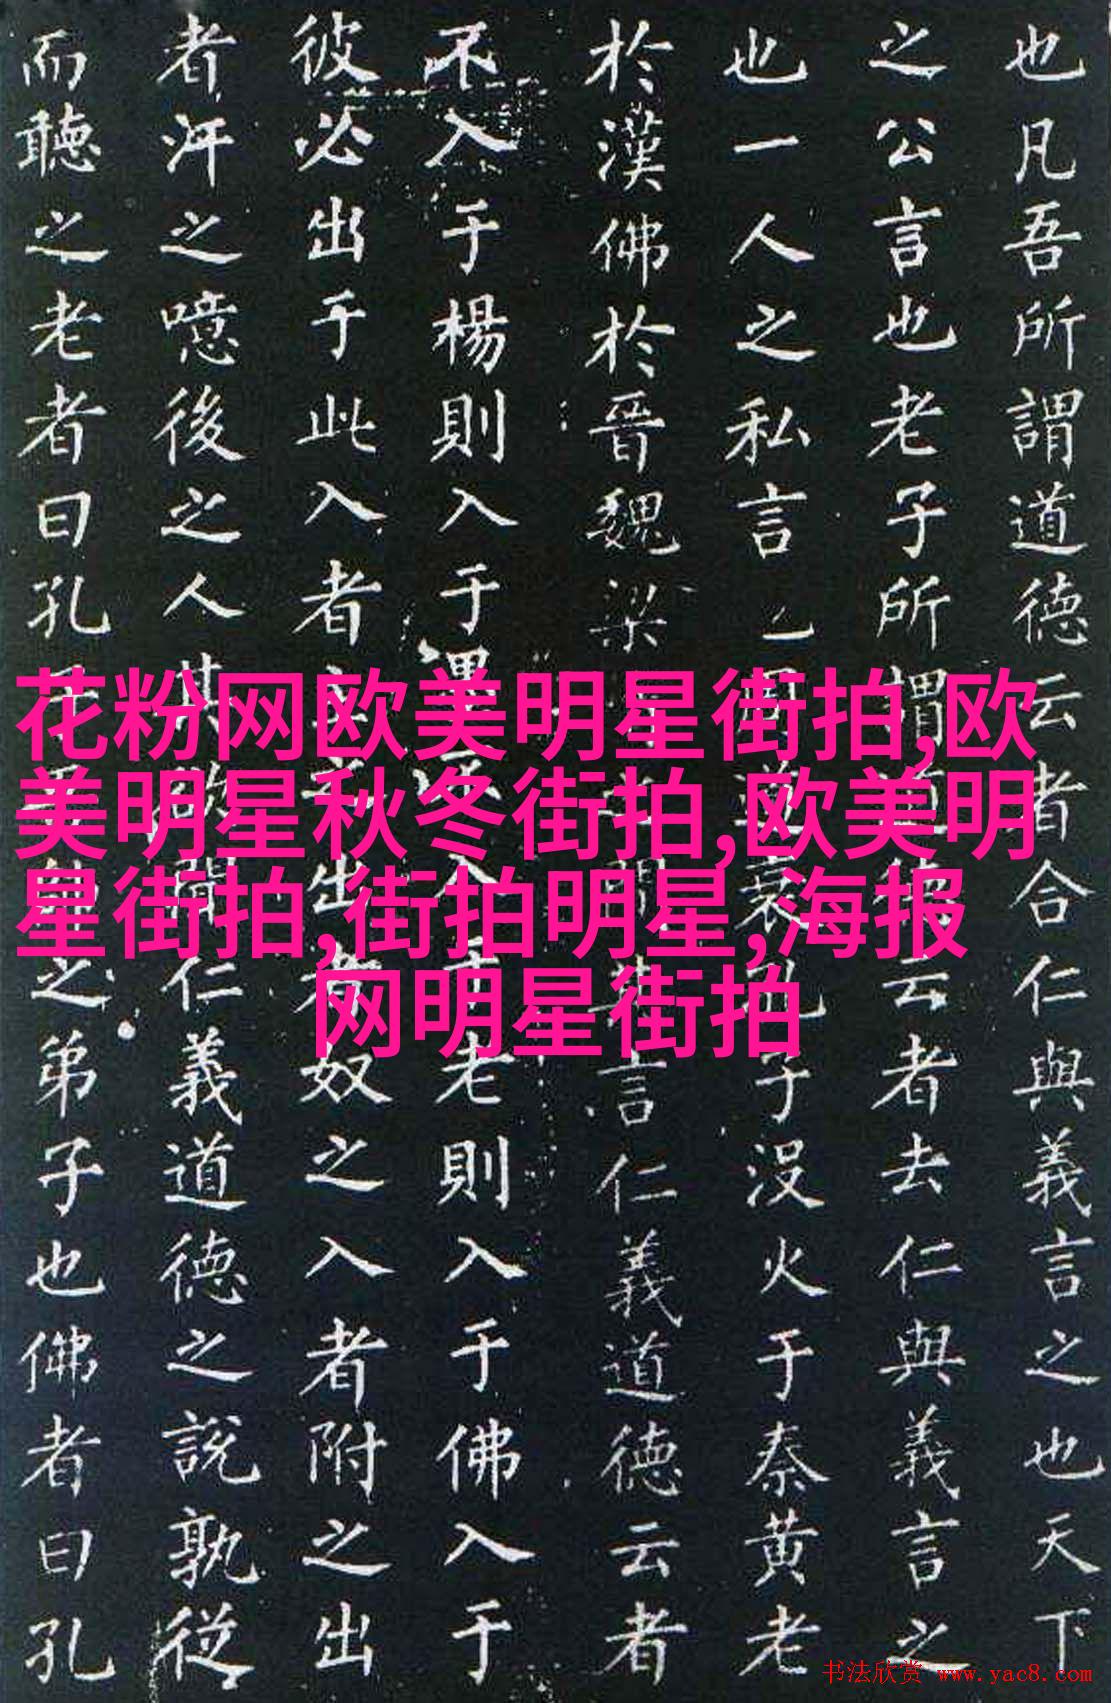 也凡吾所謂道德云者合仁與義言之也天下
之公言也老子所謂道德云者去仁與義言之
也一人之私言也周道衰孔子没火于秦黄老
於漢佛於晉魏梁隋之間其言仁義道德云者
不入于楊則入于墨不入于老則入于佛入于
彼必出于此入者主之出者奴之入者附之出
者汙之噫後之人其欲聞仁義道德之說孰從
而聽之老者曰孔子吾師之弟子也佛者曰孔
花粉网欧美明星街拍,欧
美明星秋冬街拍,欧美明
星街拍,街拍明星,海报
网明星街拍
书法欣赏 www.yac8.com